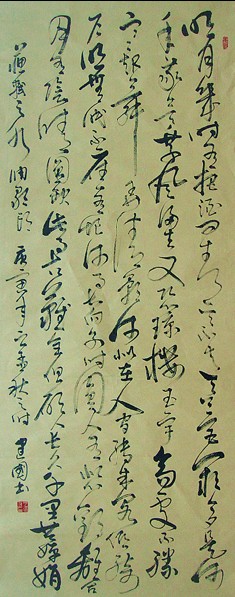 明月幾时有把酒问青天不知天上宫阙今夕是何
年我欲乘风归去又恐琼楼玉宇高处不胜
寒起舞弄清影何似在人间转朱阁低绮
户照无眠不应有恨何事长向别时圆人有悲欢离合
月有阴晴圆缺此事古难全但愿人长久千里共婵娟
苏轼之水调歌头 庚寅年 孟秋 建国书